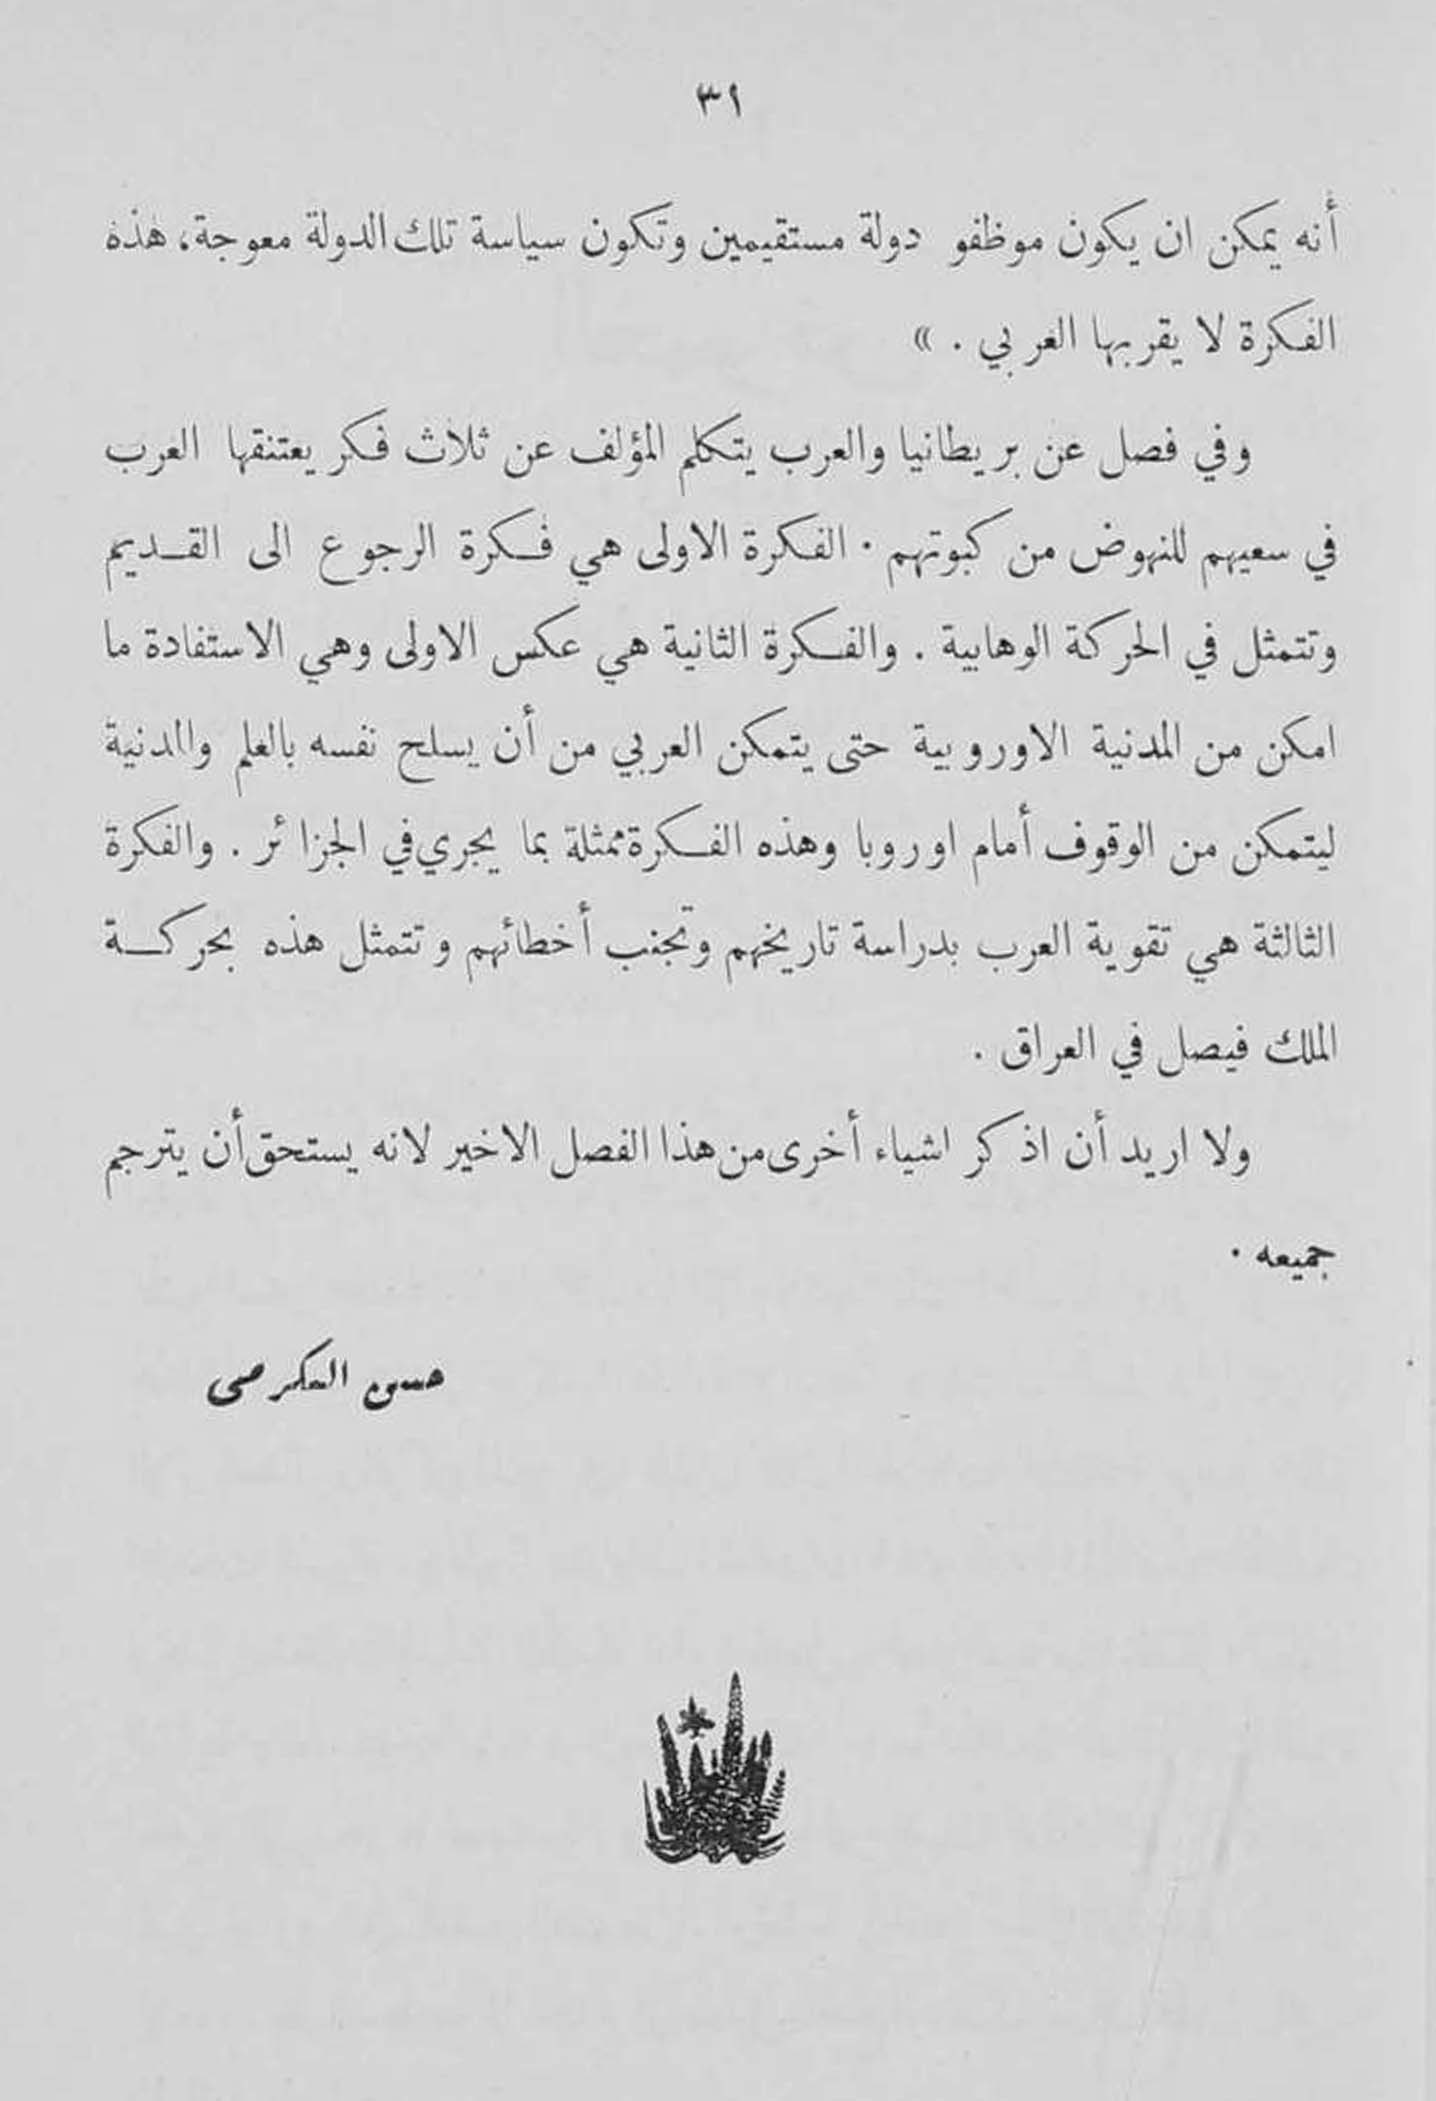 ٣١
أنه يمكن ان يكون موظفو دولة مستقيمين وتكون سياسة تلك الدولة معوجة، هذه
الفكرة لا يقربها العربي . »
وفي فصل عن بريطانيا والعرب يتكلم المؤلف عن ثلاث فكر يعتنقها العرب
في سعيهم للنهوض من كبوتهم . الفكرة الاولى هي فكرة الرجوع الى القديم
وتتمثل في الحركة الوهابية . والفكرة الثانية هي عكس الاولى وهي الاستفادة ما
امكن من المدنية الاوروبية حتى يتمكن العربي من أن يسلح نفسه بالعلم والمدنية
ليتمكن من الوقوف أمام اوروبا وهذه الفكرة ممثلة بما يجري في الجزائر . والفكرة
الثالثة هي تقوية العرب بدراسة تاريخهم وتجنب أخطائهم وتتمثل هذه بحركة
الملك فيصل في العراق .
ولا اريد أن اذكر اشياء أخرى من هذا الفصل الاخير لانه يستحق أن يترجم
جميعه .
حسن الكرمي